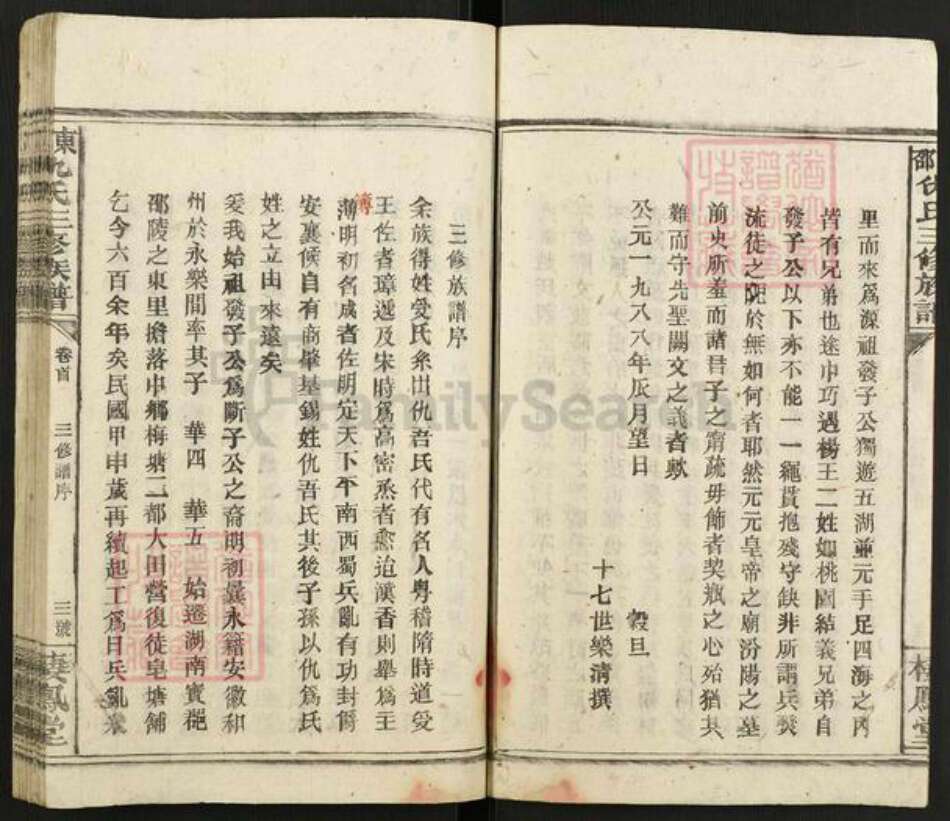 里而來爲源祖發子公獨遊五湖並元手足四海之內
皆有兄弟也途中巧遇楊王二姓如桃園結義兄弟自
發子公以下亦不能一一繩貫抱殘守缺非所謂兵燹
流徒之阨於無如何者耶然元元皇帝之廟汾陽之墓
前史所羞而諸君子之甯疏毋飾者契瓶之心殆猶其
難而守先聖闕文之義者歟
公元一九八八年辰月望日 穀旦
十七世樂清撰
三修族譜序
余族得姓受氏系出仇吾氏代有名人粵稽隋時道受
王佐者璋遞及宋時爲高密烝者愈迨漢香則舉爲主
簿
薄明初名成者佐明定天下平南西蜀兵亂有功封爵
安襄候自有商肇基錫姓仇吾氏其後子孫以仇爲氏
姓之立由來遠矣
爰我始祖發子公爲斷子公之裔明初曩永籍安徽和
州於永樂間率其子 華四 華五 始遷湖南寶郡
邵陵之東里擔落中鄉梅塘二都大田營復徒皂塘舖
乞今六百余年矣民國甲申歲再續起工爲日兵亂業
東仇氏三修族譜
卷首
三修譜序
三號
棲鳳堂
FamilySearch